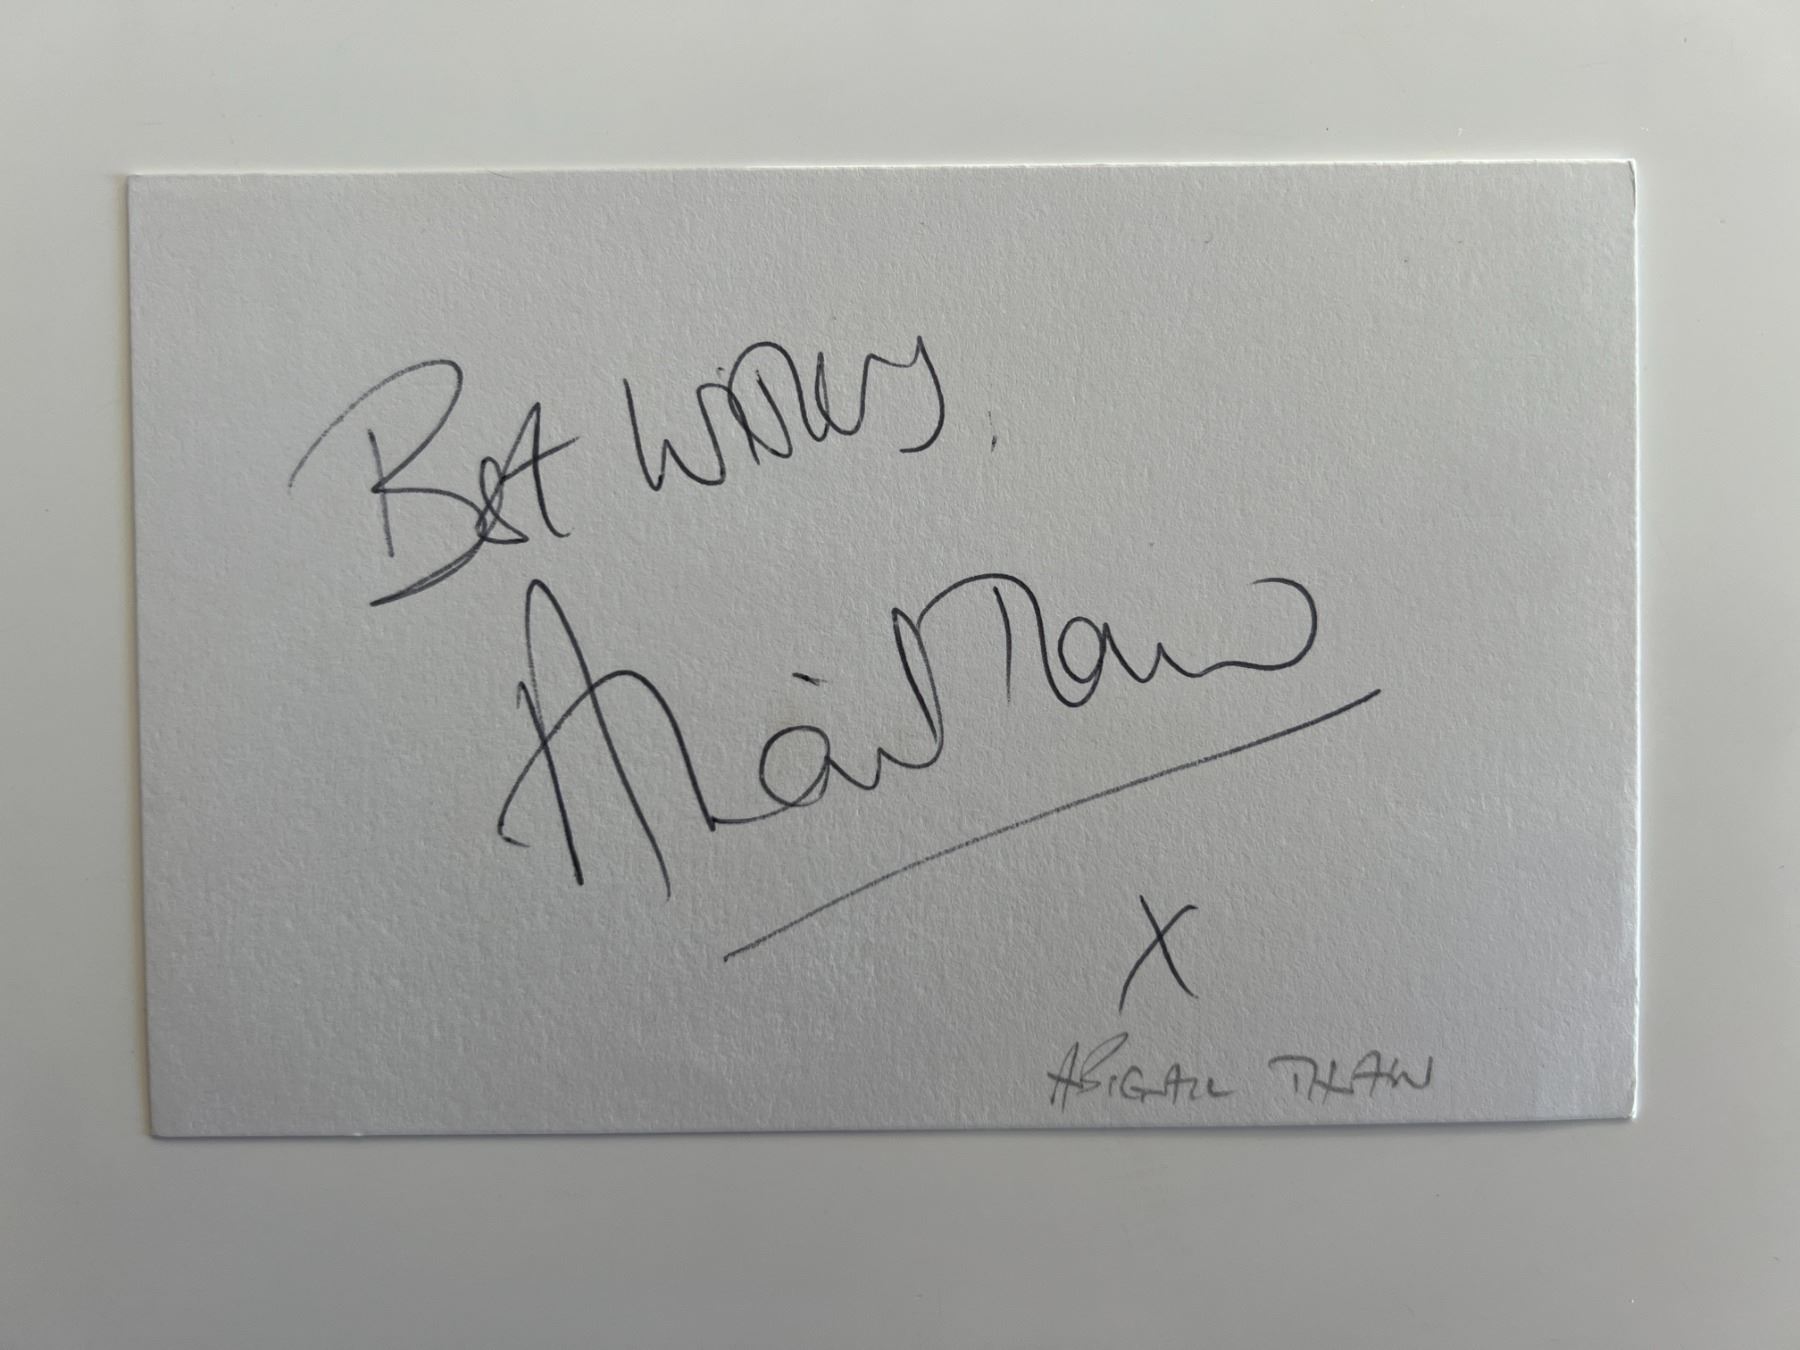 Best Wishes.
Abigail Thaw
X
ABIGAIL THAW